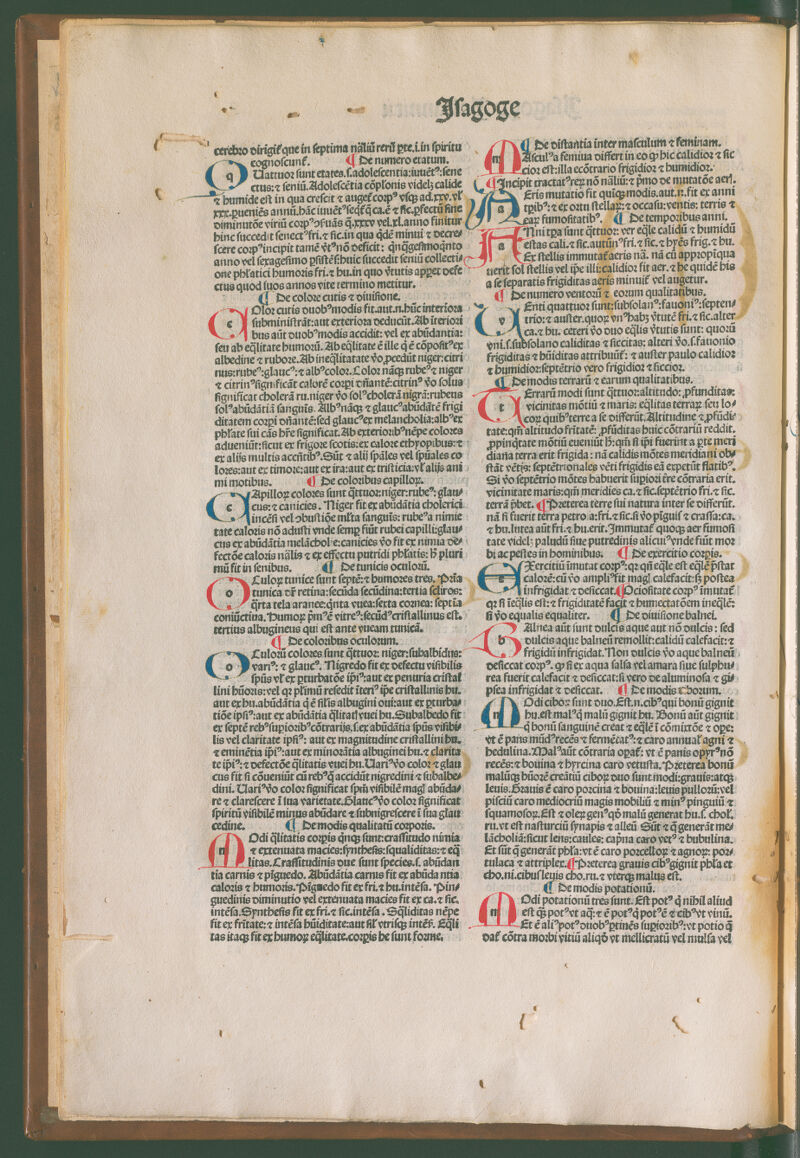 Isagoge
cerebro dirigit̃ que in septima nãliũ rerũ ꝑte.i.in spiritu
cognoscunt̃. ¶ De numero etatum.
QUattuor sunt etates.s.adolescentia:iuuẽtꝰ:sene
ctus:⁊ seniũ.Adolescẽtia cõplonis videlꝫ calide
⁊ humide est in qua crescit ⁊ auget̃ corpꝰ vsqꝫ ad.xxv.vl̃
xxx.ꝑueniẽs annũ.hãc iuuẽtꝰ seqt̃ q̃ ca.ẽ ⁊ sic.ꝑfectũ sine
diminutõe viriũ corpꝰ ꝯseruãs q̃.xxxv vel.xl.anno finitur
hinc succedit senectꝰ fri.⁊ sic.in qua qdẽ minui ⁊ decre⸗
scere corpꝰ incipit tamẽ vtꝰ nõ deficit: qnq̃gesimoqnto
anno vel sexagesimo ꝑsistẽs:huic succedit seniũ collecti⸗
one phlatici humoris fri.⁊ hu.in quo vtutis apꝑet defe
ctus quod suos annos vite termino metitur.
¶ De colore cutis ⁊ diuisione.
COlor cutis duobꝰ modis fit.aut.n.hũc interiora
subministrãt:aut exteriora deducũt.Ab iteriori
bus aũt duobꝰ modis accidit: vel ex abũdantia:
seu ab eq̃litate humorũ. Ab eq̃litate ẽ ille q̃ ẽ cõpositꝰ ex
albedine ⁊ rubore.Ab ineq̃litatate v̊o ꝓcedũt niger:citri
nus:rubeꝰ:glaucꝰ:⁊ albꝰ color.Color nãcqꝫ rubeꝰ ⁊ niger
⁊ citrinꝰ significãt calorẽ corꝑi dñantẽ:citrinꝰ v̊o solus
significat cholerã ru.niger v̊o solꝰ cholerã nigrã:rubeus
solꝰ abũdãtiã sanguis. Albꝰ nãqꝫ ⁊ glaucꝰ abũdãtẽ frigi
ditatem corꝑi dñantẽ:sed glaucꝰ ex melancholia:albꝰ ex
phlate sui cãs hr̃e significat.Ab exteriorib̃ nẽpe colores
adueniũt:sicut ex frigore scotis:ex calore ethyopibus:⁊
ex alijs multis accñtibꝰ.Sũt ⁊ alij spãles vel spũales co
lores:aut ex timore:aut ex ira:aut ex tristicia:vl̃ alijs ani
mi motibus. ¶ De coloribus capilloꝝ.
CApilloꝝ colores sunt qttuor:niger:rubeꝰ:glau⸗
cus:⁊ canicies. Niger fit ex abũdãtia cholerici
incẽsi vel ꝯbustiõe ml̃ta sanguis: rubeꝰ a nimie
tate caloris nõ adusti vnde semp̃ fiũt rubei capilli:glau⸗
cus ex abũdãtia melãchol⸗e:canicies v̊o fit ex nimia de⸗
fectõe caloris nãlis ⁊ ex effectu putridi phlatis: h̃ pluri
mũ fit in senibus. ¶ De tunicis oculorũ.
OCuloꝝ tunice sunt septẽ:⁊ humores tres. Pria
tunica dr̃ retina:secũda secũdina:tertia scliros:
q̃rta tela aranee:q̃nta vuea:sexta cornea: septia
coniũctiua.Humoꝝ pmꝰ ẽ vitreꝰ:secũdꝰ cristallinus est.
tertius albugineus qui est ante vueam tunicã.
¶ De coloribus oculorum.
OCulorũ colores sunt qttuor: niger:subalbidus:
variꝰ: ⁊ glaucꝰ. Nigredo fit ex defectu visibilis
spũs vl̃ ex ꝑturbatõe ip̃iꝰ:aut ex penuria cristal
lini hũoris:vel qꝛ plimũ resedit iteriꝰ ip̃e cristallinis hu.
aut ex hu.abũdãtia q̃ ẽ silis albugini oui:aut ex ꝑturba⸗
tiõe ip̃siꝰ:aut ex abũdãtia q̃litatꝭ vuei hu.Subalbedo fit
ex septẽ rebꝰ supioribꝰ cõtrarijs.s.ex abũdãtia spũs visibi⸗
lis vel claritate ip̃siꝰ: aut ex magnitudine cristallini hu.
⁊ eminẽtia ip̃iꝰ:aut ex minoratia albuginei hu.⁊ clarita
te ip̃iꝰ:⁊ defectõe q̃litatis vuei hu.Variꝰ v̊o color ⁊ glau
cus fit si cõueniũt cũ rebꝰ q̃ accidũt nigredini ⁊ subalbe⸗
dini. Variꝰ v̊o color significat spm̃ visibilẽ magꝭ abũda⸗
re ⁊ clarescere i sua varietate.Glaucꝰ v̊o color significat
spiritũ visibilẽ minus abũdare ⁊ subnigrescere i sua glau
cedine. ¶ De modis qualitatũ corporis.
MOdi q̃litatis corꝑis qnqꝫ sunt:crassitudo nimia
⁊ extenuata macies:synthesis:squaliditas:⁊ eq̃
litas.Crassitudinis due sunt species.s. abũdan
tia carnis ⁊ pĩguedo. Abũdãtia carnis fit ex abũda ntia
caloris ⁊ humoris. Piguedo fit ex fri.⁊ hu.intẽsa. Pin⸗
guedinis diminutio vel extenuata macies fit ex ca.⁊ sic.
intẽsa.Synthesis fit ex fri.⁊ sic.intẽsa . Sq̃liditas nẽpe
fit ex frĩtate:⁊ intẽsa hũiditate:aut sil̃ vtrisqꝫ intẽs̃. Eq̃li
tas itaqꝫ fit ex humoꝝ eq̃litate.corꝑis he sunt forme.
¶ De distantia inter masculum ⁊ feminam.
MAsculꝰ a femina differt in eo qꝫ hic calidior ⁊ sic
cior est:illa ecõtrario frigidior ⁊ humidior.
¶ Incipit tractatꝰ reꝝ nõ nãliũ:⁊ pmo de mutatõe aeris̃.
AEris mutatio fit quiqꝫ modis.aut.n.fit ex anni
tpibꝰ: ⁊ ex ortu stellaꝝ: ⁊ occasu:ventis: terris ⁊
eaꝝ fumositatibꝰ. ¶ De temporibus anni.
ANni tꝑa sunt qttuor: ver eq̃le calidũ ⁊ humidũ
estas cali.⁊ sic.autũnꝰ fri.⁊ sic.⁊ hyẽs frig.⁊ hu.
Ex stellis immutat̃ aeris nã. nã cũ appropiqua
uerit sol stellis vel ip̃e illi:calidior fit aer.⁊ he quidẽ his
a se separatis frigiditas aeris minuit̃ vel augetur.
¶ De numero ventorũ ⁊ eorum qualitatibus.
VEnti quattuor sunt:subsolanꝰ:fauoniꝰ:septen⸗
trio:⁊ auster.quoꝝ vnꝰ habꝫ vtutẽ fri.⁊ sic.alter
ca.⁊ hu. ceteri v̊o duo eq̃lis vtutis sunt: quorũ
vni.s.subsolano caliditas ⁊ siccitas: alteri v̊o.s.fauonio
frigiditas ⁊ hũiditas attribuũt̃: ⁊ auster paulo calidior
⁊ humidior:septẽtrio vero frigidior ⁊ siccior.
¶ De modis terrarũ ⁊ earum qualitatibus.
TErrarũ modi sunt qttuor:altitudo:ꝓfunditas:
vicinitas mõtiũ ⁊ maris: eq̃litas terraꝝ seu lo⸗
coꝝ quibꝰ terre a se differũt. Altitudine ⁊ ꝓfũdi⸗
tate:qñ altitudo frĩtatẽ: ꝓfũditas huic cõtrariũ reddit.
ꝓpinqtate mõtiũ eueniũt h̃:qñ si ip̃i fuerint a ꝑte meri
diana terra erit frigida: nã calidis mõtes meridiani ob⸗
stãt vẽtꝭ: septẽtrionales vẽti frigidis eã expetũt flatibꝰ.
Si v̊o septẽtrio mõtes habuerit supiori ẽre cõtraria erit.
vicinitate maris:qñ meridies ca.⁊ sic.septẽtrio fri.⁊ sic.
terrã ꝓbet. ¶ Preterea terre sui natura inter se differũt.
nã si fuerit terra petro a:fri.⁊ sic.si v̊o piguis ⁊ crassa:ca.
⁊ hu.lutea aũt fri.⁊ hu.erit.Immutat̃ quoqꝫ aer fumosi
tate videlꝫ paludũ siue putredinis alicuiꝰ vnde fiũt mor
bi ac pestes in hominibus. ¶ De exercitio corꝑis.
EXercitiũ imutat corpꝰ:qꝛ qñ eq̃le est eq̃lẽ pstat
calorẽ:cũ v̊o ampliꝰ fit magꝭ calefacit:sꝫ postea
infrigidat ⁊ desiccat.¶ Ociositate corpꝰ imutat̃
qꝛ si ieq̃lis est:⁊ frigiditatẽ facit ⁊ humectatõem ineq̃lẽ:
si v̊o equalis equaliter. ¶ De diuisione balnei.
BAlnea aũt sunt dulcis aque aut nõ dulcis : sed
dulcis aque balneũ remollit:calidũ calefacit:⁊
frigidũ infrigidat.Non dulcis v̊o aque balneũ
desiccat corpꝰ. ꝙ si ex aqua salsa vel amara siue sulphu⸗
rea fuerit calefacit ⁊ desiccat:si vero de aluminosa ⁊ gi⸗
psea infrigidat ⁊ desiccat. ¶ De modis ciborum.
MOdi ciboꝝ sunt duo.Est.n.cibꝰ qui bonũ gignit
hu.est malꝰ q̃ malũ gignit hu. Bonũ aũt gignit
q̃ bonũ sanguinẽ creat ⁊ eq̃lẽ i cõmixtõe ⁊ ope:
vt ẽ panis mũdꝰ recẽs ⁊ fermẽtatꝰ:⁊ caro annualꝭ agni ⁊
hedulina.Malꝰ aũt cõtraria opat̃: vt ẽ panis opyrꝰ nõ
recẽs:⁊ bouina ⁊ hyrcina caro vetusta. Preterea bonũ
malũqꝫ hũorẽ creãtiũ ciboꝝ duo sunt modi:grauis:atqꝫ
leuis.Grauis ẽ caro porcina ⁊ bouina:leuis pulloꝝ:vel
pisciũ caro mediocriũ magis mobiliũ ⁊ minꝰ pinguiũ ⁊
squamosoꝝ.Est ⁊ oleꝝ genꝰ qd̃ malũ generat hu.s. chol̃.
ru.vt est nasturciũ synapis ⁊ alleũ. Sũt ⁊ q̃ generãt me⸗
lãcholiã:sicut lens:caules: caꝑina caro vetꝰ ⁊ bubulina.
Et sũt q̃ generãt phl̃a:vt ẽ caro porcelloꝝ ⁊ agnoꝝ: por⸗
tulaca ⁊ attriplex.¶ Preterea grauis cibꝰ gignit phl̃a et
cho.ni.cibꝰ leuis cho.ru.⁊ vterqꝫ malus est.
¶ De modis potationũ.
MOdi potationũ tres sunt.Est potꝰ q̃ nihil aliud
est q̃ꝫ potꝰ vt aq̃:⁊ ẽ potꝰ q̃ potꝰ ẽ ⁊ cibꝰ vt vinũ.
Et ẽ aliꝰ potꝰ duobꝰ ꝑtinẽs supioribꝰ:vt potio q̃
dat̃ cõtra morbi vitiũ aliqd̃ vt mellicratũ vel mulsa vel